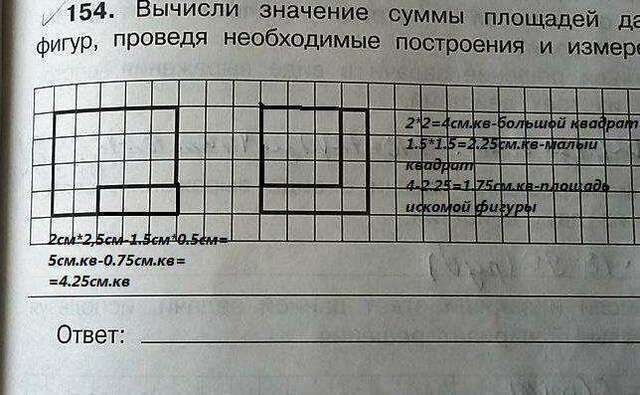 154. Вычисли значение суммы площадей да
фигур, проведя необходимые построения и измере
2*2=4см.кв-большой квадрат
1.5*1.5=2.25см.кв-малый
квадрат
4-2.25=1.75см.кв-площадь
искомой фигуры
2см*2,5см-1.5см*0.5см=
5см.кв-0.75см.кв=
=4.25см.кв
Ответ: